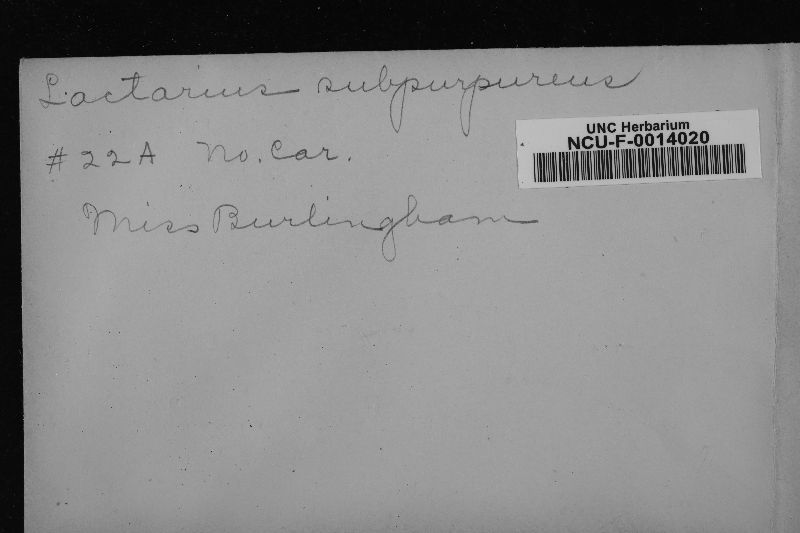 Lactarius subpurpureus
UNC Herbarium
NCU-F-0014020
# 22A No. Car.
Miss Burlingham